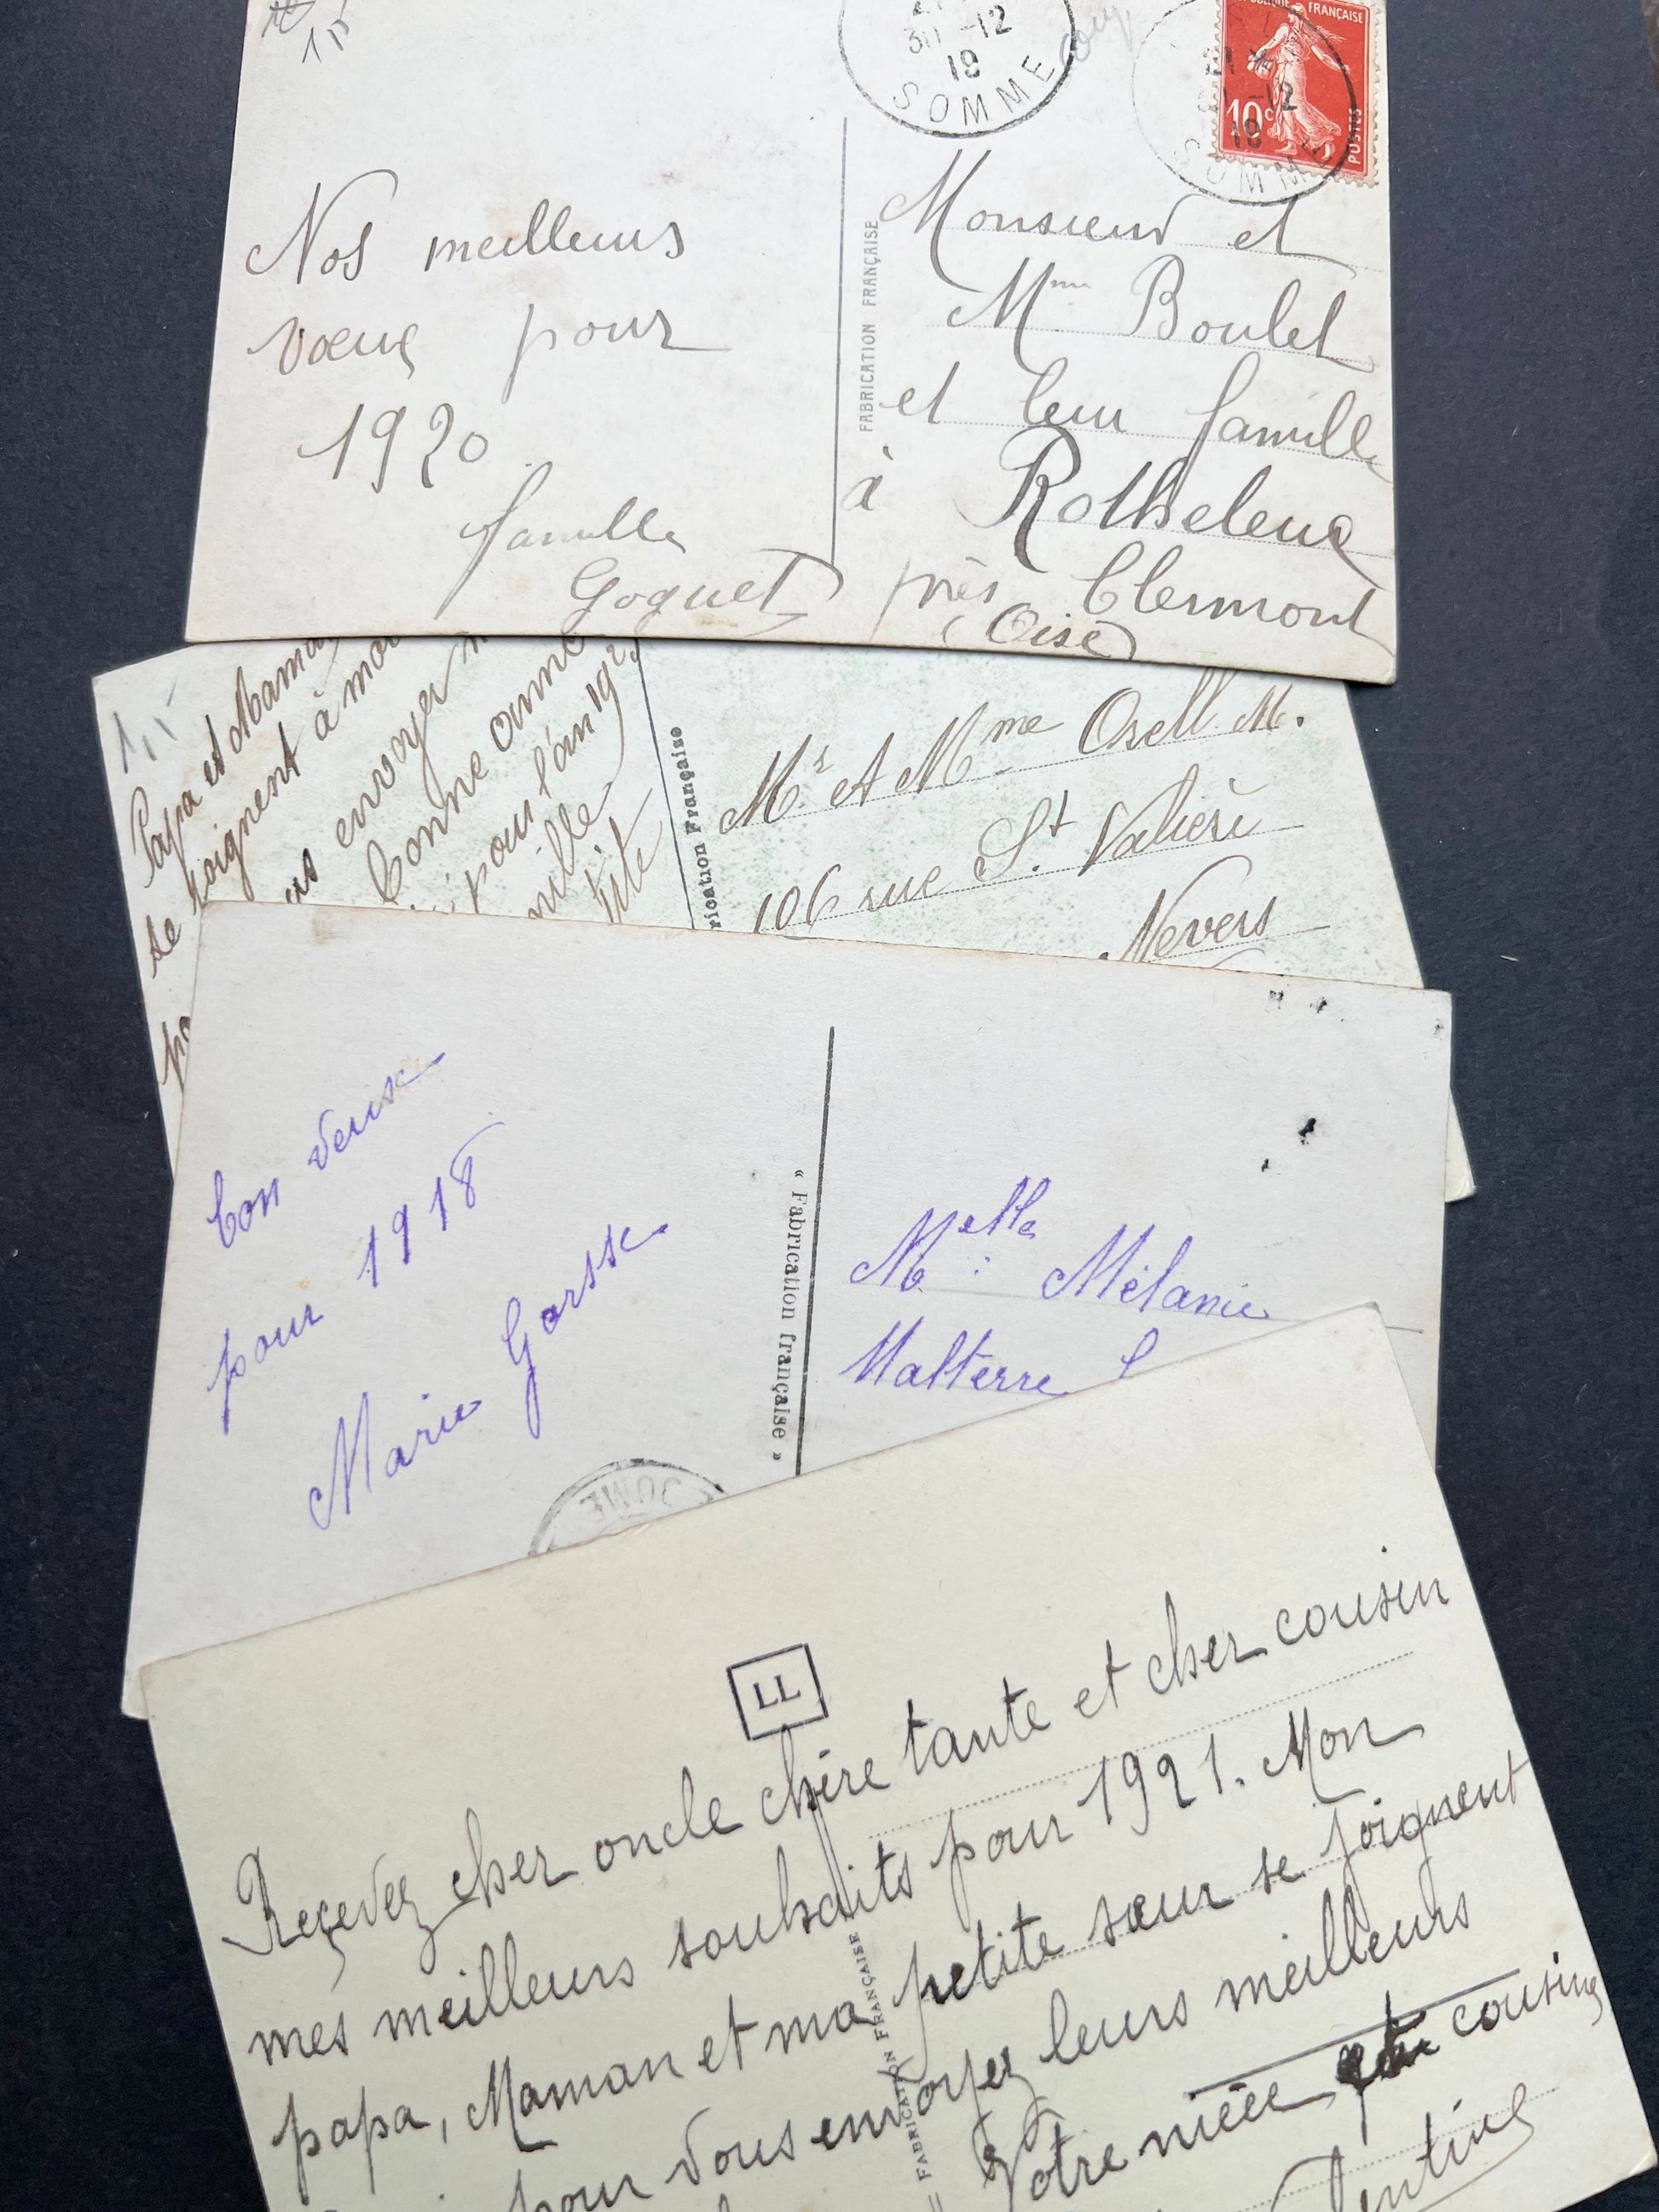 15
30 -12
19
SOMME
RÉPUBLIQUE FRANÇAISE
10c
POSTES
-12
19
SOMME
Nos meilleurs
vœux pour
1920
famille
Goguet
FABRICATION FRANÇAISE
Monsieur et
Mme Boulet
et leur famille
à Rotheleux
près Clermont
(Oise)
Papa et Maman
se joignent à moi
envoyer
bonne année
pour l'an 19
Fabrication Française
Mr et Mme Osell M.
106 rue St. Valière
Nevers
bon
pour 1918
Marie Gorsse
« Fabrication française »
Melle Mélanie
Malterre
LL
Reçevez cher oncle chère tante et cher cousin
mes meilleurs souhaits pour 1921. Mon
papa, Maman et ma petite sœur se joignent
pour vous envoyez leurs meilleurs
Votre nièce cousine
FABRICATION FRANÇAISE